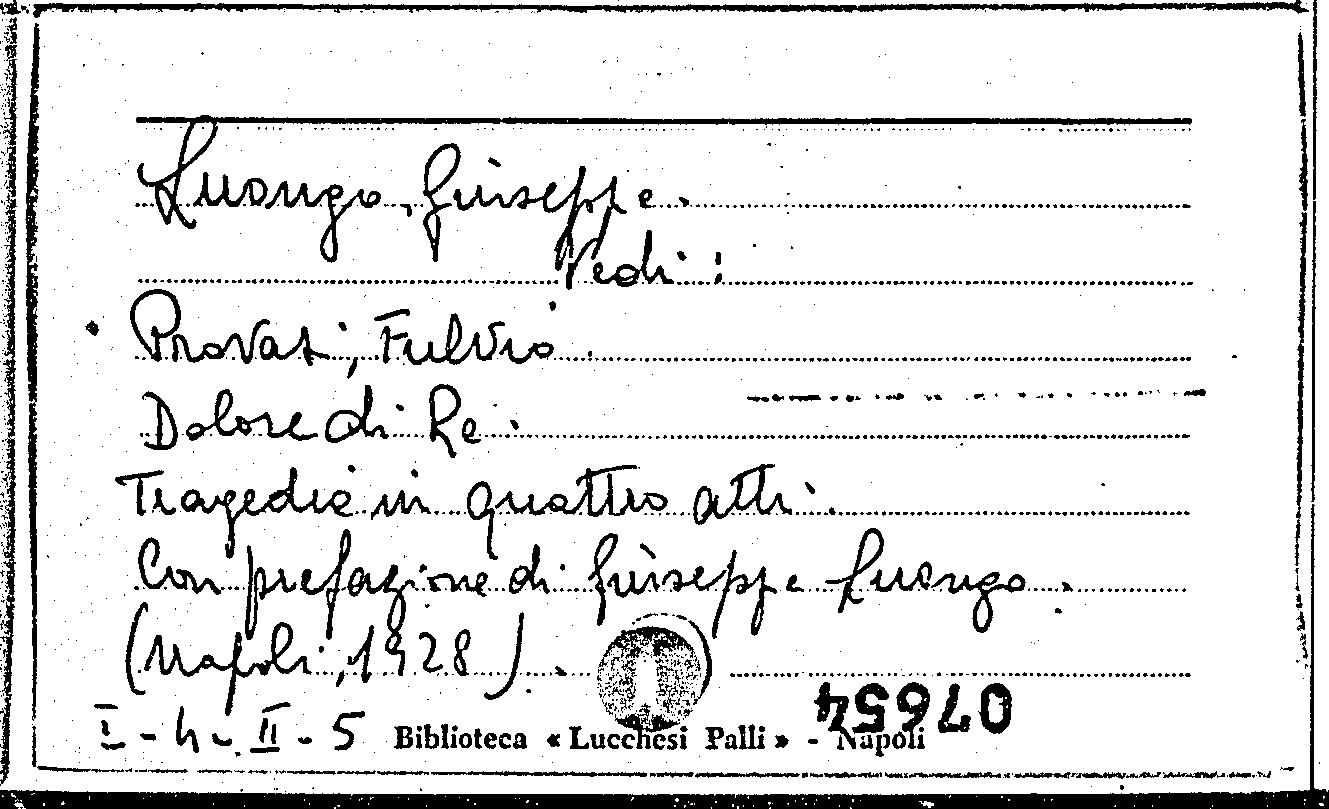 Luongo, Giuseppe.
Vedi:
Provati, Fulvio.
Dolore di Re.
Tragedia in quattro atti.
Con prefazione di Giuseppe Luongo.
(Napoli, 1928).
I-4-II-5 Biblioteca « Lucchesi Palli » - Napoli
07654